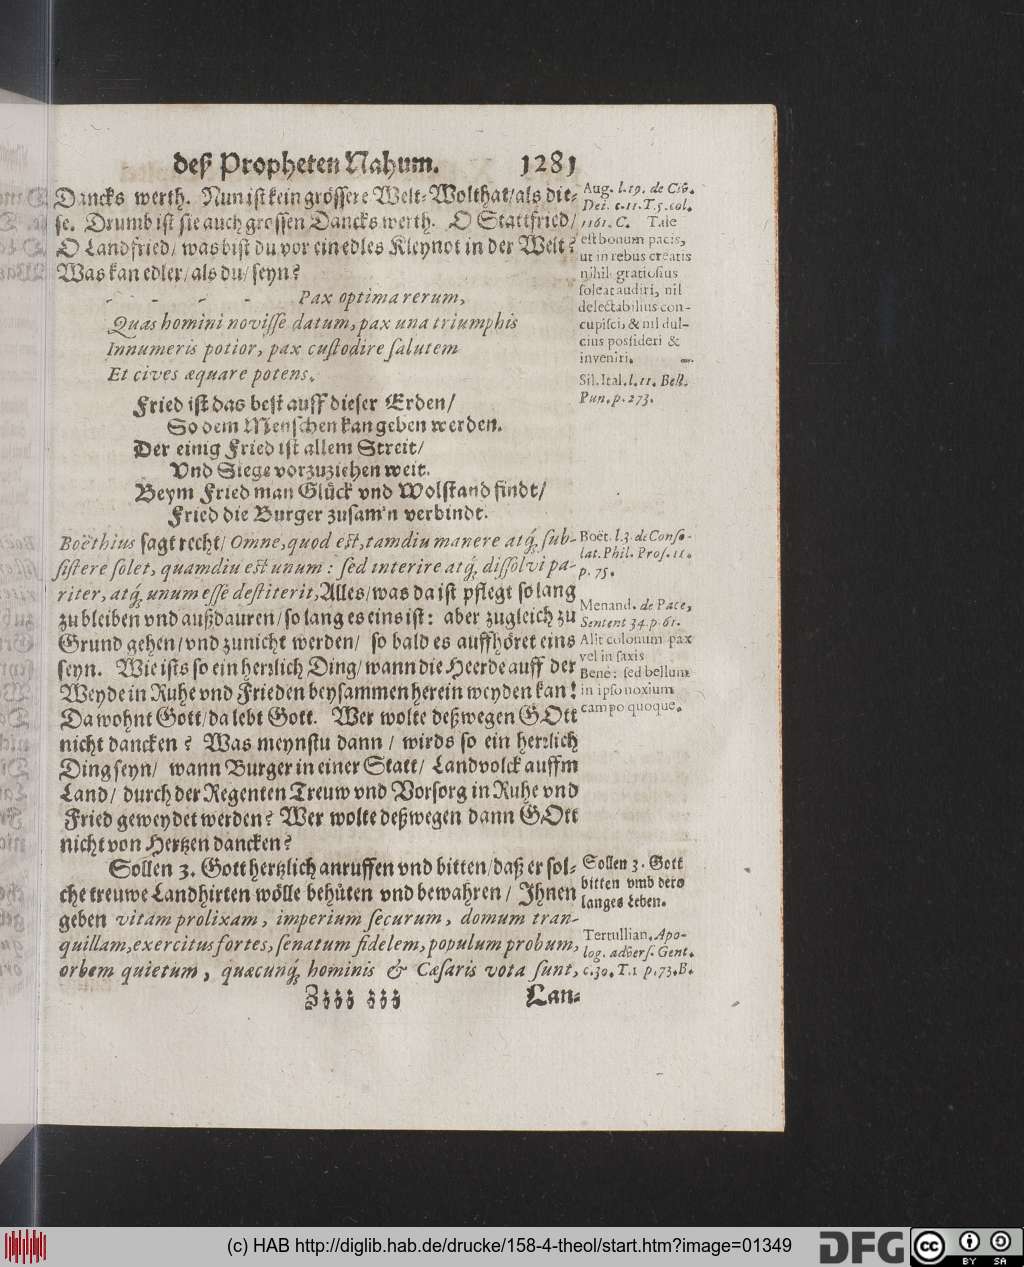 deß Propheten Nahum. 1281
Dancks werth. Nun ist kein grössere Welt-Wolthat/als die-
se. Drumb ist sie auch grossen Dancks werth. O Stattfried/
O Landfried/ was bist du vor ein edles Kleynot in der Welt?
Was kan edler/als du/seyn?
- - - - Pax optima rerum,
Quas homini novisse datum, pax una triumphis
Innumeris potior, pax custodire salutem
Et cives æquare potens.
Fried ist das best auff dieser Erden/
So dem Menschen kan geben werden.
Der einig Fried ist allem Streit/
Vnd Siege vorzuziehen weit.
Beym Fried man Glück vnd Wolstand findt/
Fried die Burger zusam'n verbindt.
Boëthius sagt recht/ Omne, quod est, tamdiu manere atq́; sub-
sistere solet, quamdiu est unum: sed interire atq́; dissolvi pa-
riter, atq́; unum esse destiterit, Alles/was da ist pflegt so lang
zu bleiben vnd außdauren/so lang es eins ist: aber zugleich zu
Grund gehen/vnd zunicht werden/ so bald es auffhöret eins
seyn. Wie ists so ein herrlich Ding/wann die Heerde auff der
Weyde in Ruhe vnd Frieden beysammen herein weyden kan!
Da wohnt Gott/da lebt Gott. Wer wolte deßwegen GOtt
nicht dancken? Was meynstu dann/ wirds so ein herrlich
Ding seyn/ wann Burger in einer Statt/ Landvolck auffm
Land/ durch der Regenten Treuw vnd Vorsorg in Ruhe vnd
Fried geweydet werden? Wer wolte deßwegen dann GOtt
nicht von Hertzen dancken?
Sollen 3. Gott hertzlich anruffen vnd bitten/daß er sol-
che treuwe Landhirten wölle behüten vnd bewahren/ Ihnen
geben vitam prolixam, imperium securum, domum tran-
quillam, exercitus fortes, senatum fidelem, populum probum,
orbem quietum, quæcunq́; hominis & Cæsaris vota sunt,
Zzzz zzz Lan-
Aug. l. 19. de Civ.
Dei. c. 11. T. 5. col.
1161. C. Tale
est bonum pacis,
ut in rebus creatis
nihil gratiosius
soleat audiri, nil
delectabilius con-
cupisci, & nil dul-
cius possideri &
inveniri.
Sil. Ital. l. 11. Bell.
Pun. p. 273.
Boët. l. 3. de Conso-
lat. Phil. Pros. 11.
p. 75.
Menand. de Pace,
Sentent 34. p. 61.
Alit colonum pax
vel in saxis
Bene: sed bellum
in ipso noxium
campo quoque.
Sollen 3. Gott
bitten vmb dero
langes Leben.
Tertullian. Apo-
log. advers. Gent.
c. 30. T. 1 p. 73. B.
(c) HAB http://diglib.hab.de/drucke/158-4-theol/start.htm?image=01349
DFG
cc BY SA